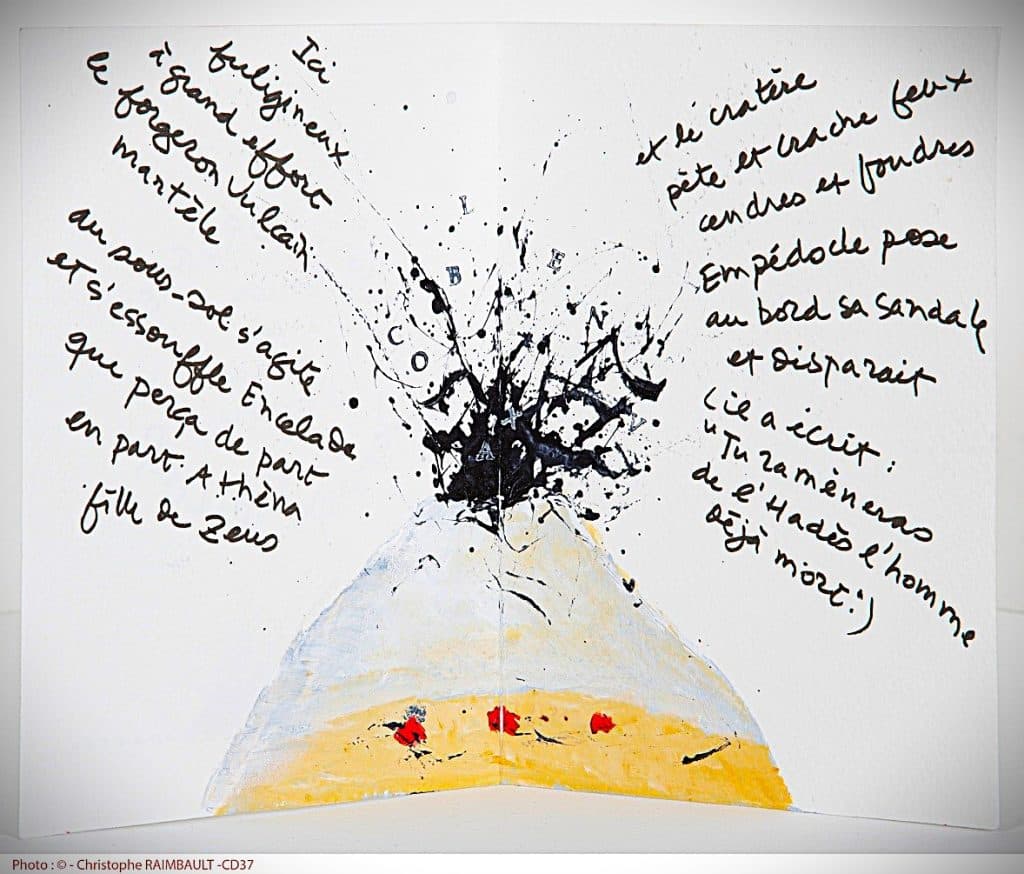 Ici
fuligineux
à grand effort
le forgeron Vulcain
martèle
au sous-sol s'agite
et s'essouffle Encelade
que perça de part
en part Athèna
fille de Zeus
et le cratère
pète et crache feux
cendres et foudres
Empédocle pose
au bord sa sandale
et disparait
(il a écrit :
"Tu ramèneras
de l'Hadès l'homme
déjà mort :)
L
B
E
C
O
N
A
V
Photo : © - Christophe RAIMBAULT -CD37